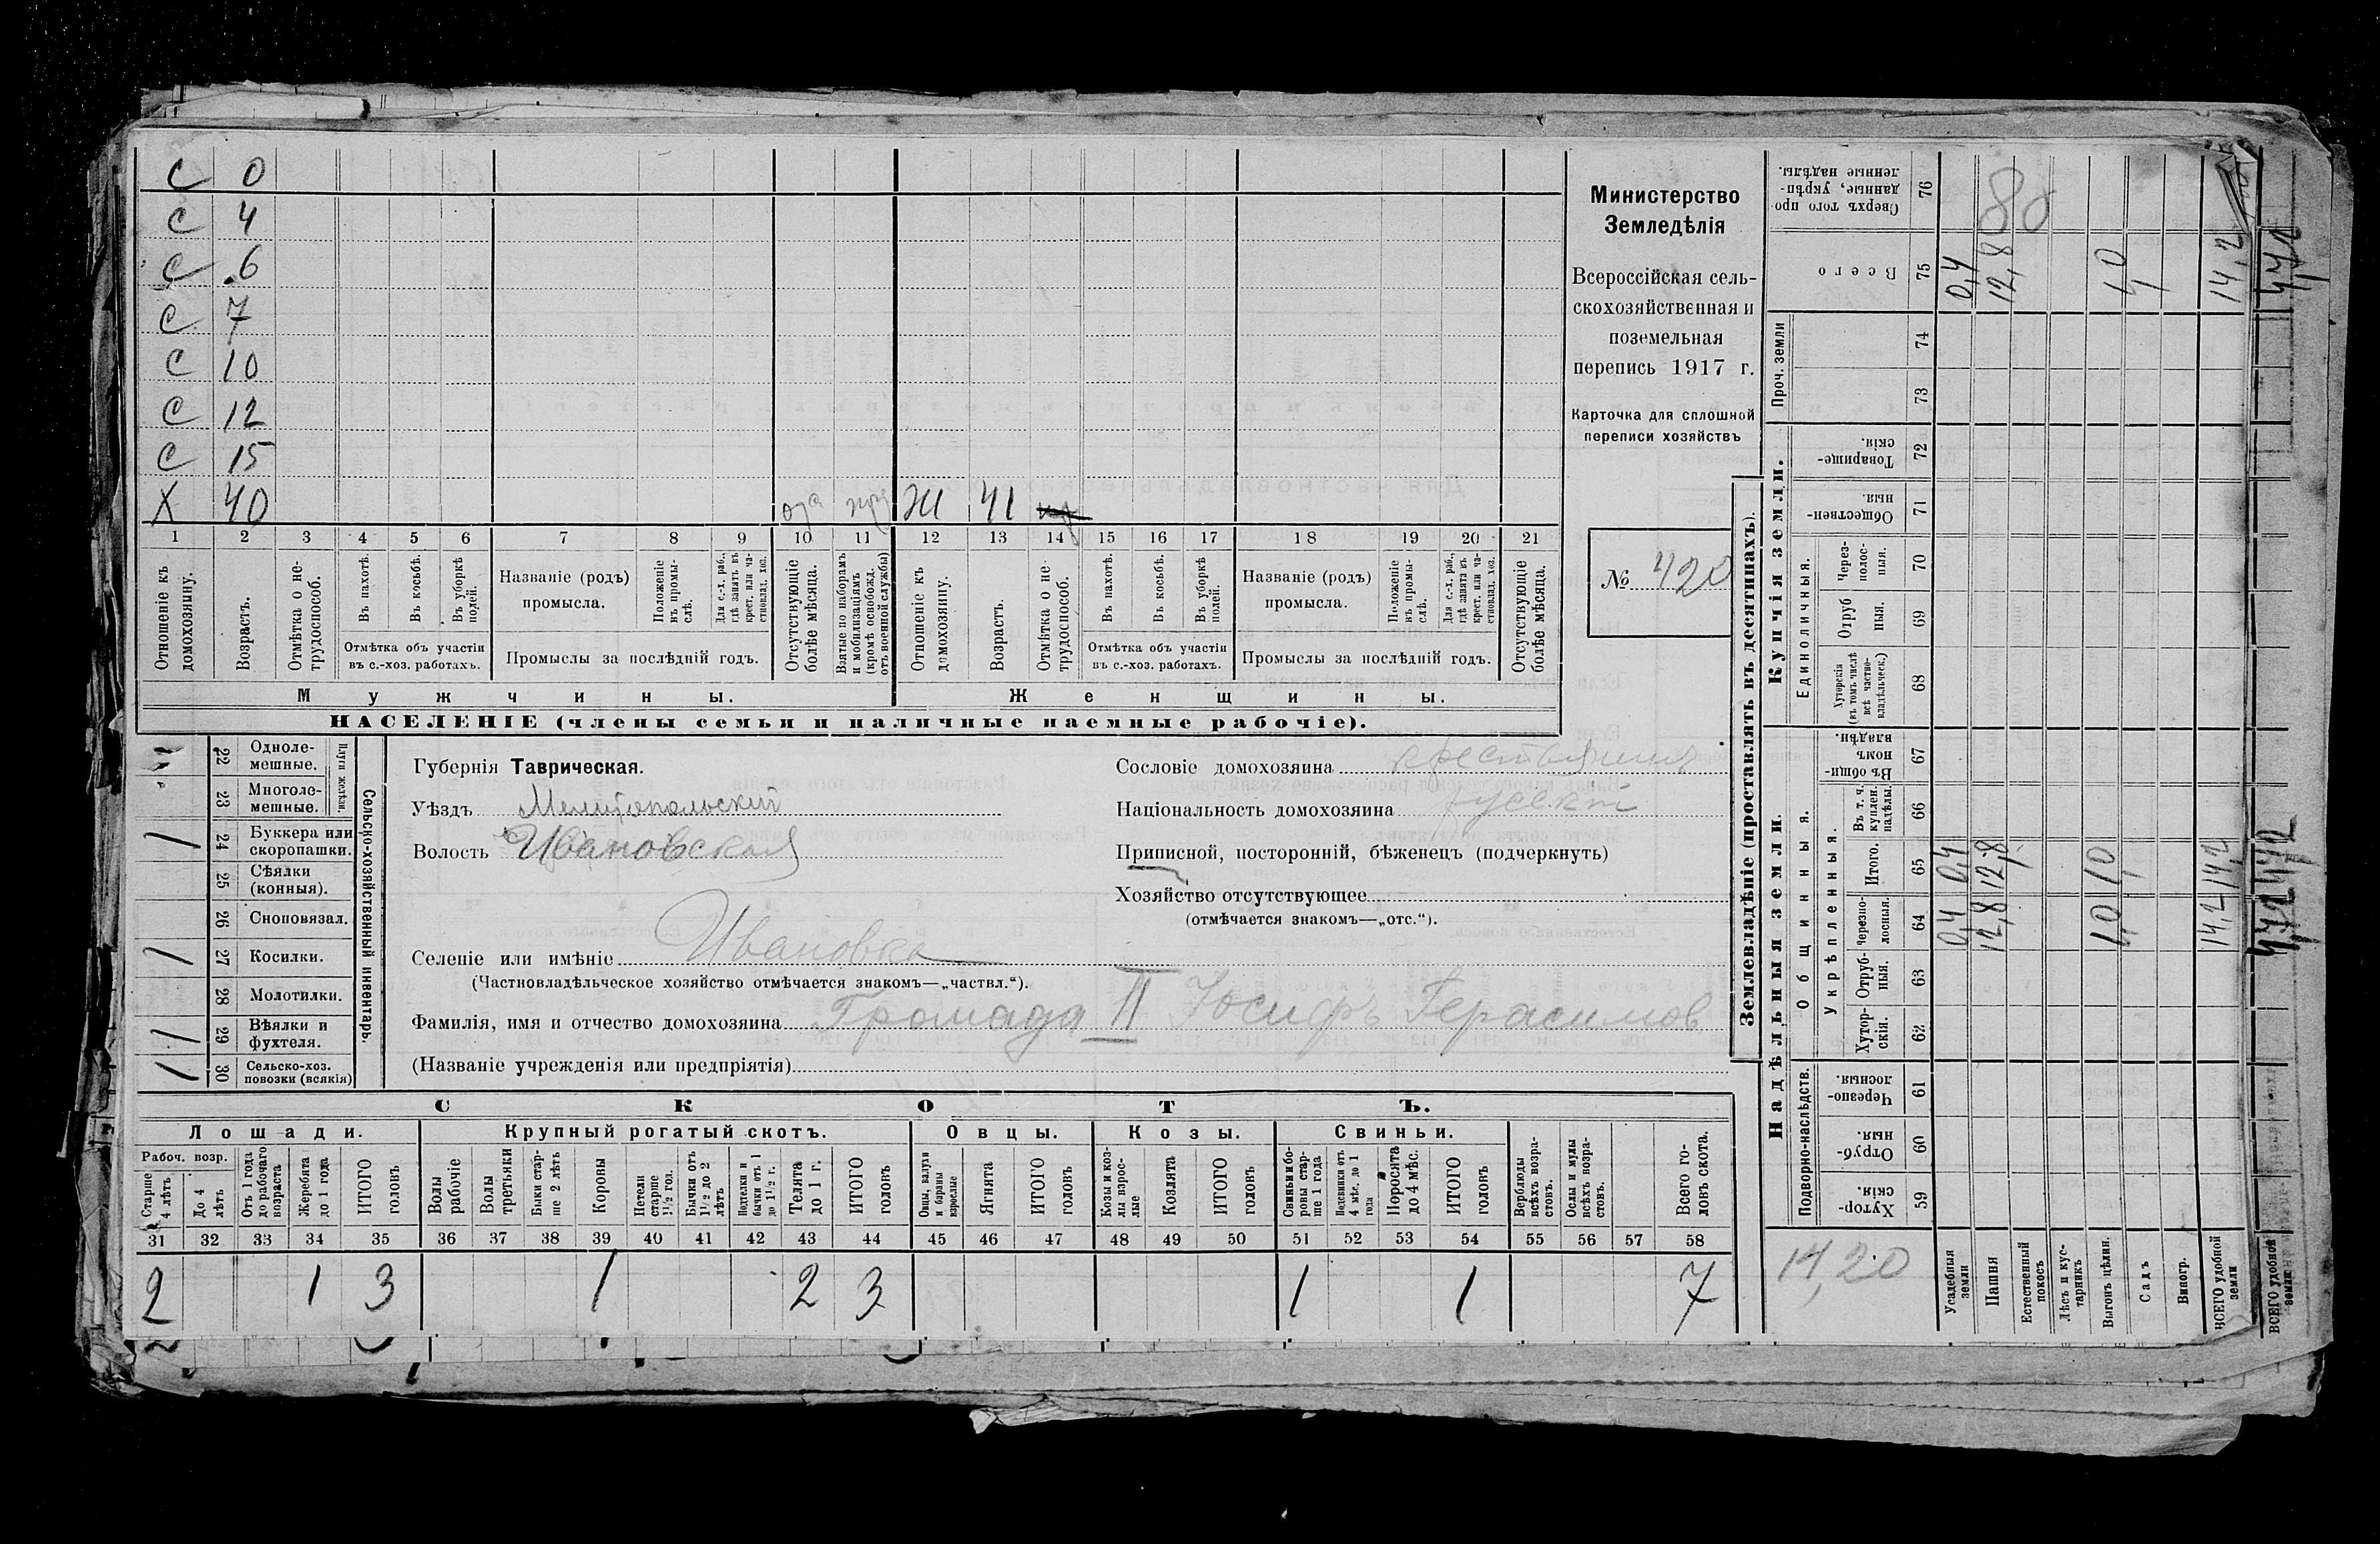 С 0
С 4
С 6
С 7
С 10
С 12
С 15
Х 40 Ж 41
1 2 3 4 5 6 7 8 9 10 11 12 13 14 15 16 17 18 19 20 21
Отношеніе къ домохозяину.
Возрастъ.
Отмѣтка о не-трудоспособ.
Въ пахотѣ.
Въ косьбѣ.
Въ уборкѣ полей.
Отмѣтка объ участіи
въ с.-хоз. работахъ.
Названіе (родъ)
промысла.
Положеніе въ промы-слѣ.
Для с.-х. раб., гдѣ занятъ въ крест. или ча-стновлад. хоз.
Промыслы за послѣдній годъ.
Отсутствующіе болѣе мѣсяца.
Взятые по наборамъ и мобилизаціямъ (кромѣ освобожд. отъ военной службы)
Отношеніе къ домохозяину.
Возрастъ.
Отмѣтка о не-трудоспособ.
Въ пахотѣ.
Въ косьбѣ.
Въ уборкѣ полей.
Отмѣтка объ участіи
въ с.-хоз. работахъ.
Названіе (родъ)
промысла.
Положеніе въ промы-слѣ.
Для с.-х. раб., гдѣ занята въ крест. или ча-стновлад. хоз.
Промыслы за послѣдній годъ.
Отсутствующіе болѣе мѣсяца.
Мужчины.
Женщины.
НАСЕЛЕНІЕ (члены семьи и наличные наемные рабочіе).
Министерство
Земледѣлія
Всероссійская сель-
скохозяйственная и
поземельная
перепись 1917 г.
Карточка для сплошной
переписи хозяйствъ
№ 420
22 Одноле-мешные.
23 Многоле-мешные.
Плуги желѣзн.
1 24 Буккера или скоропашки.
25 Сѣялки (конныя).
26 Сноповязал.
1 27 Косилки.
28 Молотилки.
1 29 Вѣялки и фухтеля.
1 30 Сельско-хоз. повозки (всякія)
Сельско-хозяйственный инвентарь.
Губернія Таврическая.
Уѣздъ Мелитопольский
Волость Ивановская
Селеніе или имѣніе Ивановка
(Частновладѣльческое хозяйство отмѣчается знакомъ—„частвл.“).
Фамилія, имя и отчество домохозяина Громада II Іосифъ Герасимов
(Названіе учрежденія или предпріятія)
Сословіе домохозяина крестьянинъ
Національность домохозяина русскій
Приписной, посторонній, бѣженецъ (подчеркнуть)
Хозяйство отсутствующее
(отмѣчается знакомъ—„отс.“).
СКОТЪ.
Лошади. Крупный рогатый скотъ. Овцы. Козы. Свиньи.
Рабоч. возр.
Старше 4 лѣтъ
До 4 лѣтъ
Отъ 1 года до рабочаго возраста
Жеребята до 1 года
ИТОГО головъ
Волы рабочіе
Волы третьяки
Быки стар-ше 2 лѣтъ
Коровы
Нетели старше 1½ год.
Бычки отъ 1½ до 2 лѣтъ
Подтелки и бычки отъ 1 до 1½ г.
Телята до 1 г.
ИТОГО головъ
Овцы, валухи и бараны взрослые
Ягнята
ИТОГО головъ
Козы и коз-лы взрос-лые
Козлята
ИТОГО головъ
Свиньи и бо-ровы стар-ше 1 года
Подсвинки отъ 4 мѣс. до 1 года
Поросята до 4 мѣс.
ИТОГО головъ
Верблюды всѣхъ возра-стовъ.
Ослы и мулы всѣхъ возра-стовъ.
Всего го-ловъ скота.
31 32 33 34 35 36 37 38 39 40 41 42 43 44 45 46 47 48 49 50 51 52 53 54 55 56 57 58
2 1 3 1 2 3 1 1 7
Землевладѣніе (проставлять въ десятинахъ).
Надѣльныя земли.
Купчія земли.
Проч. земли
Подворно-наслѣдств.
Общинныя.
Укрѣпленныя.
Единоличныя.
Хутор-скія. 59
Отруб-ныя. 60
Черезпо-лосныя. 61
Хутор-скія. 62
Отруб-ныя. 63
Черезпо-лосныя. 64
Итого. 65
Въ т. ч. куплен. надѣлы. 66
Въ общи-номъ владѣн. 67
Хуторскія (въ томъ числѣ всѣ частно-владѣльческ.) 68
Отруб ныя. 69
Через-полос-ныя. 70
Обществен-ныя. 71
Товарище-скія. 72
73
74
Всего 75
Сверхъ того про-данные, укрѣп-ленные надѣлы. 76
14,20
88
Усадебныя земли 0,4 0,4 0,4
Пашня 12,8 12,8 12,8
Естественный покосъ
Лѣсъ и кус-тарникъ
Выгонъ цѣлин. 1,0 1,0 1,0
Садъ
Виногр.
ВСЕГО удобной земли 14,2 14,2 14,2
ВСЕГО удобной земли